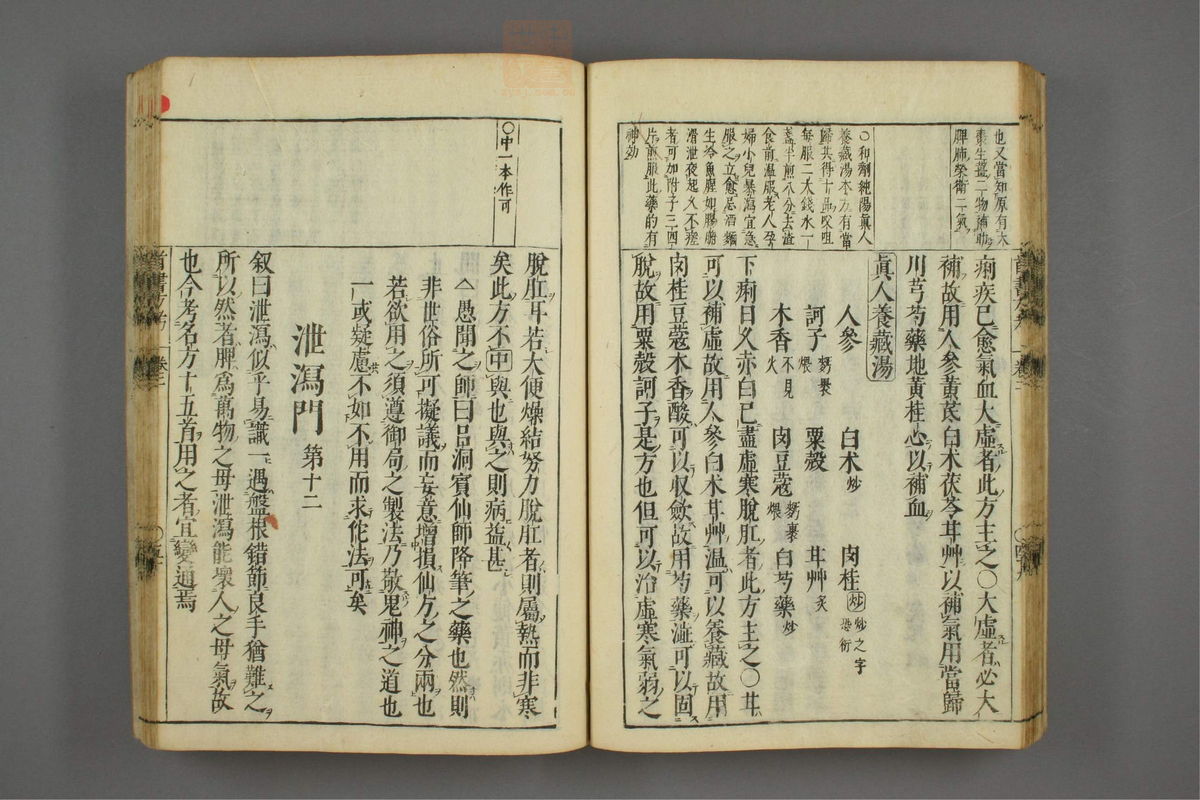 也又當知原有大
棗生薑二物補助
脾肺榮衛二氣
○和劑純陽眞人
養藏湯本方有當
歸共得十品㕮咀
每服二大錢水一
盞半煎八分去渣
食前溫服老人孕
婦小兒暴瀉宜急
服之立愈忌酒麵
生冷魚腥如臟腑
滑泄夜起久不瘥
者可加附子三四
片煎服此藥的有
神効
痢疾已愈氣血大虛者此方主之○大虛者必大
補故用人參黃芪白术茯苓甘艸以補氣用當歸
川芎芍藥地黃桂心以補血
眞人養藏湯
人參 白术炒 肉桂炒 炒之字恐衍
訶子麪裹煨 粟殼 甘艸炙
木香不見火 肉豆蔻麪裹煨 白芍藥炒
下痢日久赤白已盡虛寒脫肛者此方主之○甘
可以補虛故用人參白术甘艸溫可以養藏故用
肉桂豆蔻木香酸可以収歛故用芍藥澁可以固
脫故用粟殼訶子是方也但可以治虛寒氣弱之
○中一本作可
脫肛耳若大便燥結努力脫肛者則屬熱而非寒
矣此方不中與也與之則病益甚
愚聞之師曰呂洞賓仙師降筆之藥也然則
非世俗所可擬議而妄意增損仙方之分兩也
若欲用之須遵御局之製法乃敬鬼神之道也
一或疑慮不如不用而求佗法可矣
泄瀉門 第十二
叙曰泄瀉似乎易識一遇盤根錯節良手猶難之
所以然者脾爲萬物之母泄瀉能壞人之母氣故
也合考名方十五首用之者宜變通焉